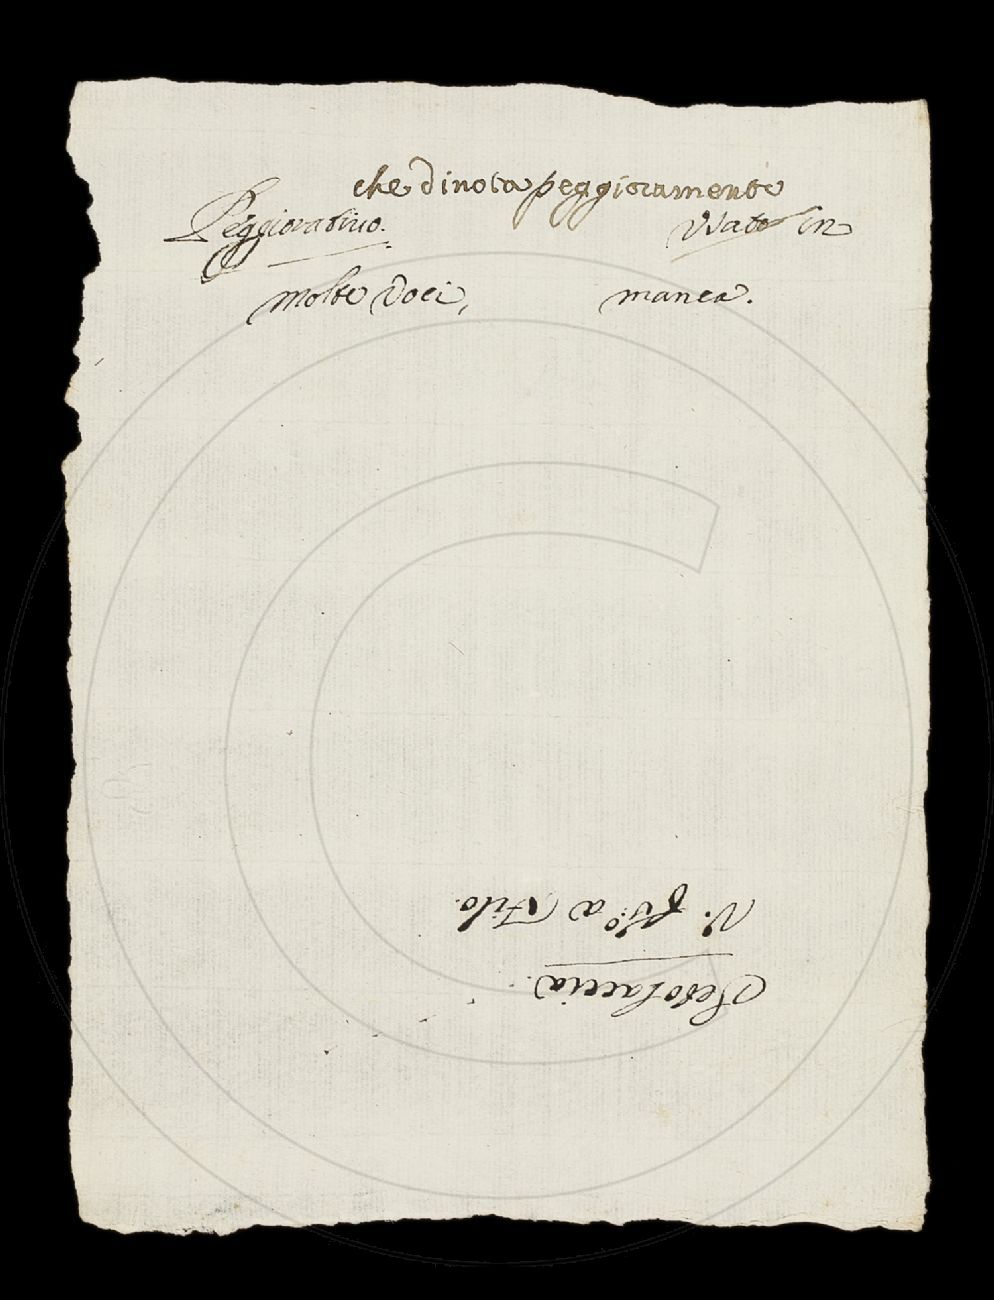 che dinota peggioramento
Peggiorativo. Usato in
molte voci, manca.
Setolaccia.
V. fu.º a Filo.